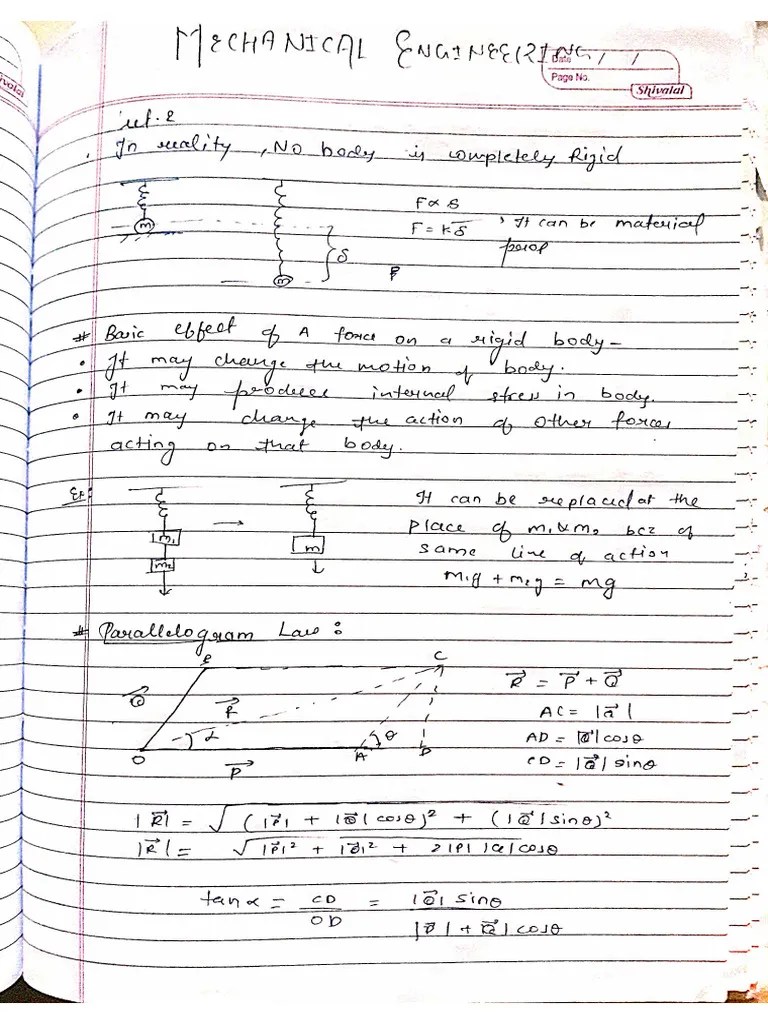 MECHANICAL ENGINEERING
Date / /
Page No.
Shivalal
. In reality, No body is completely Rigid
m
m
δ
F
F ∝ δ
F = kδ , It can be material
prop
# Basic effect of A force on a rigid body -
• It may change the motion of body.
• It may produces internal stress in body.
• It may change the action of other forces
acting on that body.
Ex:
m1
m2
→
m
It can be replaced at the
place of m1 & m2 bcz of
same line of action
m1g + m2g = mg
# Parallelogram Law :
B
C
Q⃗
R⃗
α
θ
O
P⃗
A
D
R⃗ = P⃗ + Q⃗
AC = |Q⃗|
AD = |Q⃗| cosθ
CD = |Q⃗| sinθ
|R⃗| = √(|P⃗| + |Q⃗| cosθ)² + (|Q⃗| sinθ)²
|R⃗| = √|P⃗|² + |Q⃗|² + 2|P| |Q| cosθ
tan α = CD/OD = |Q⃗| sinθ / |P⃗| + |Q⃗| cosθ